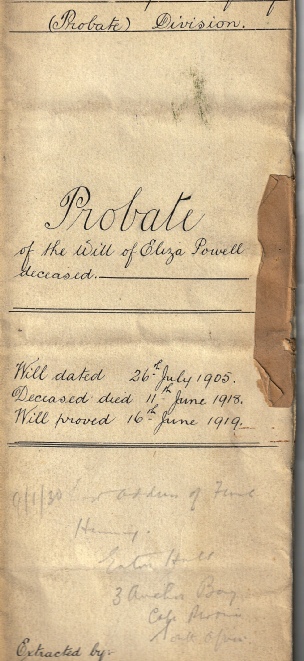 (Probate) Division.
Probate
of the Will of Eliza Powell
deceased.
Will dated 26th July 1905.
Deceased died 11th June 1918.
Will proved 16th June 1919.
Address of
Hall
3 Anchor Bay
Cape
Extracted by